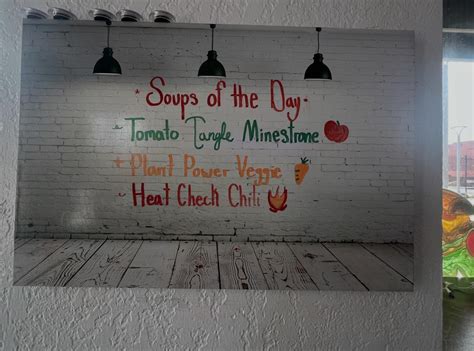 Soups of the Day
Tomato Tangle Minestrone
Plant Power Veggie
Heat Check Chili